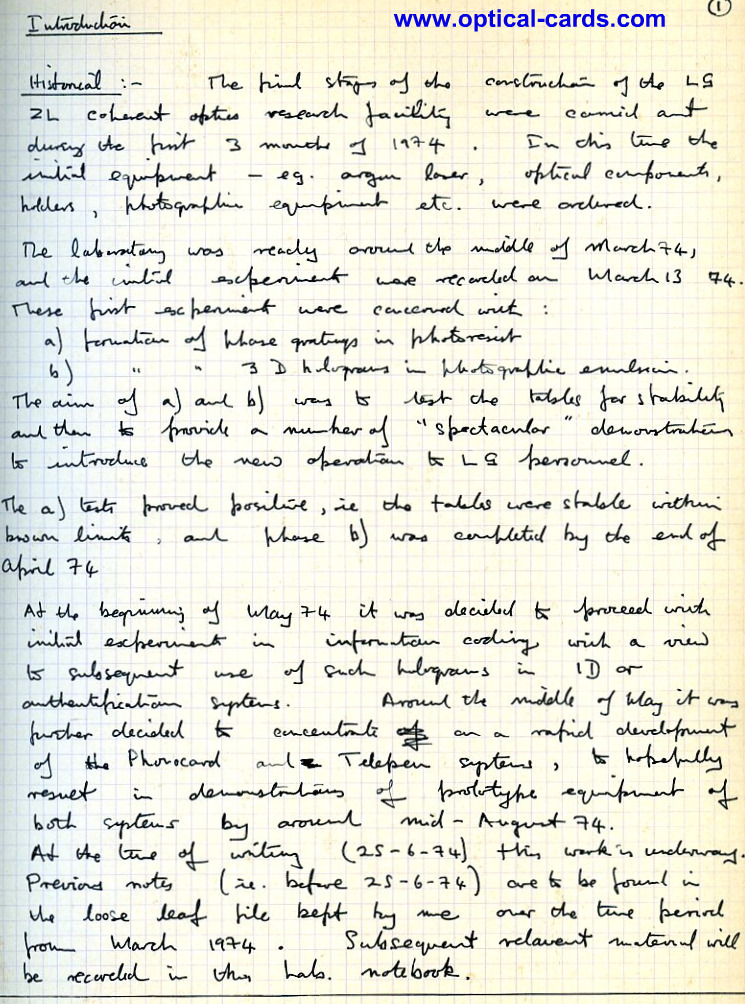 www.optical-cards.com
1
Introduction
Historical :- The final stages of the construction of the LG
ZL coherent optics research facility were carried out
during the first 3 months of 1974. In this time the
initial equipment - eg. argon laser, optical components,
holders, photographic equipment etc. were ordered.
The laboratory was ready around the middle of March 74,
and the initial experiment were recorded on March 13 74.
These first experiment were concerned with :
a) formation of phase gratings in photoresist
b) " " 3 D holograms in photographic emulsion.
The aim of a) and b) was to test the tables for stability
and then to provide a number of "spectacular" demonstrations
to introduce the new operation to LG personnel.
The a) tests proved positive, ie the tables were stable within
known limits, and phase b) was completed by the end of
April 74
At the beginning of May 74 it was decided to proceed with
initial experiment in information coding with a view
to subsequent use of such holograms in ID or
authentification systems. Around the middle of May it was
further decided to concentrate on a rapid development
of the Phonocard and Telepen systems, to hopefully
result in demonstrations of prototype equipment of
both systems by around mid-August 74.
At the time of writing (25-6-74) this work is underway.
Previous notes (ie. before 25-6-74) are to be found in
the loose leaf file kept by me over the time period
from March 1974. Subsequent relavent material will
be recorded in this Lab. notebook.